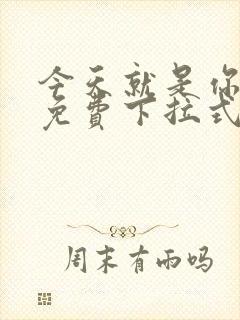 今天就是你
免费下拉式
周末有雨吗